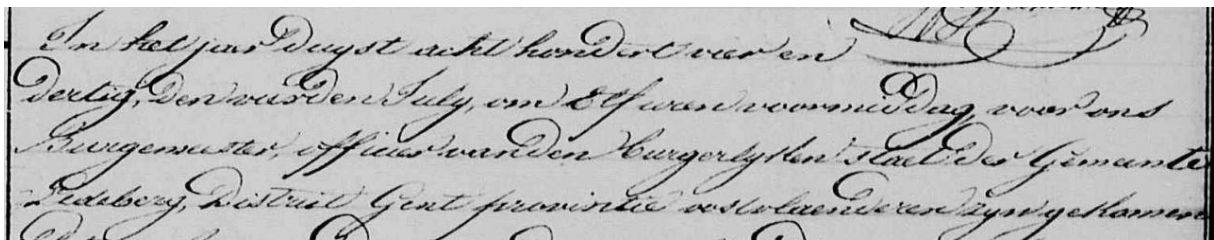 In het jaer Duyst acht hondert vier en
dertig, den vierden July, om Elf uren voormiddag, voor ons
Burgemeester, officier van den Burgerlyken staet der Gemeente
Ledeberg, District Gent provintie oostvlaenderen zyn gekomen